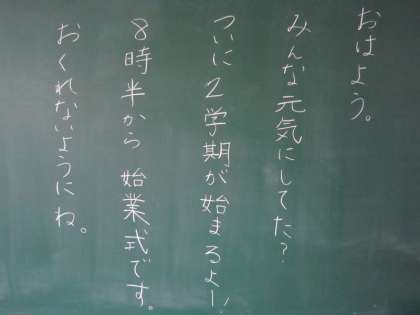 おはよう。
みんな元気にしてた?
ついに2学期が始まるよー!
8時半から 始業式です。
おくれないようにね。